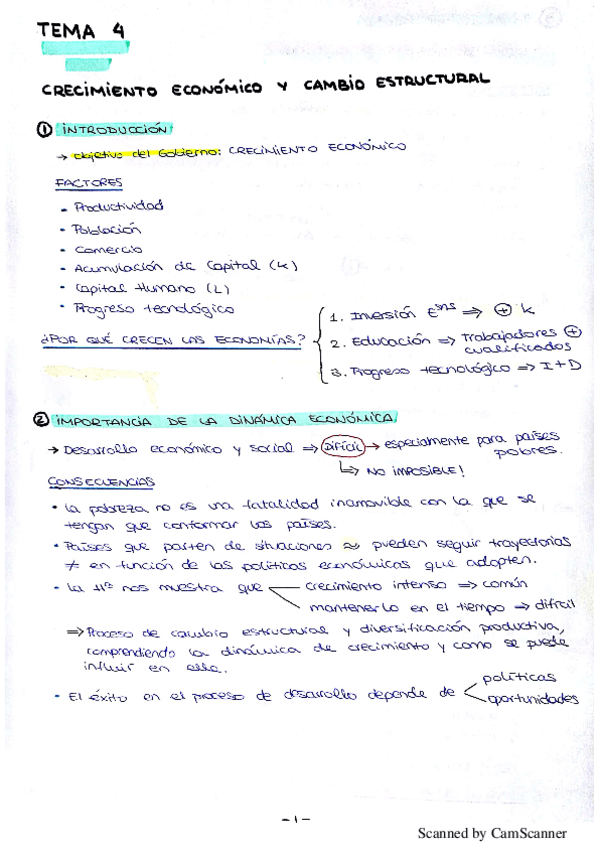 TEMA 4
CRECIMIENTO ECONÓMICO Y CAMBIO ESTRUCTURAL
① INTRODUCCIÓN
→ objetivo del Gobierno: CRECIMIENTO ECONÓMICO
FACTORES
- Productividad
• Población
• Comercio
- Acumulación de Capital (K)
• Capital Humano (L)
• Progreso tecnológico
¿POR QUÉ CRECEN LAS ECONOMÍAS?
1. Inversión Eˢⁿˢ ⇒ ⊕ K
2. Educación ⇒ Trabajadores ⊕
cualificados
3. Progreso tecnológico ⇒ I+D
② IMPORTANCIA DE LA DINÁMICA ECONÓMICA
→ Desarrollo económico y social ⇒ DIFÍCIL → especialmente para países
pobres.
↳ NO IMPOSIBLE!
CONSECUENCIAS
• La pobreza no es una fatalidad inamovible con la que se
tengan que conformar los países.
• Países que parten de situaciones ≈ pueden seguir trayectorias
≠ en función de las políticas económicas que adopten.
• La Hª nos muestra que
crecimiento intenso ⇒ común
mantenerlo en el tiempo → difícil
⇒ Proceso de cambio estructural y diversificación productiva,
comprendiendo la dinámica de crecimiento y como se puede
influir en ella.
• El éxito en el proceso de desarrollo depende de
políticas
oportunidades
-1-
Scanned by CamScanner